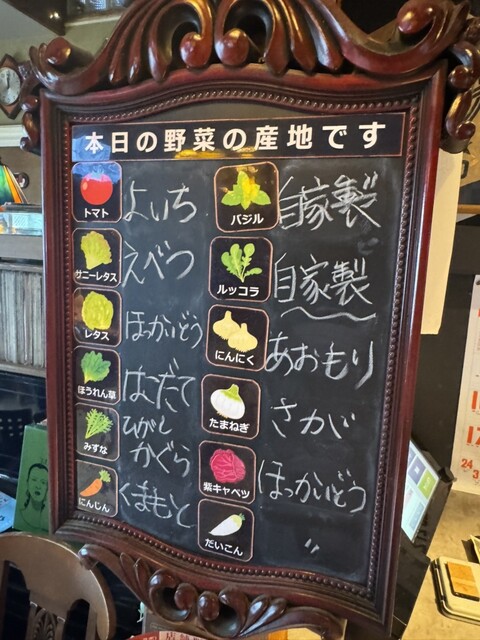 本日の野菜の産地です
トマト よいち
サニーレタス えべつ
レタス ほっかいどう
ほうれん草 はこだて
みずな ひがし
かぐら
にんじん くまもと
バジル 自家製
ルッコラ 自家製
にんにく あおもり
たまねぎ さが
紫キャベツ ほっかいどう
だいこん 〃